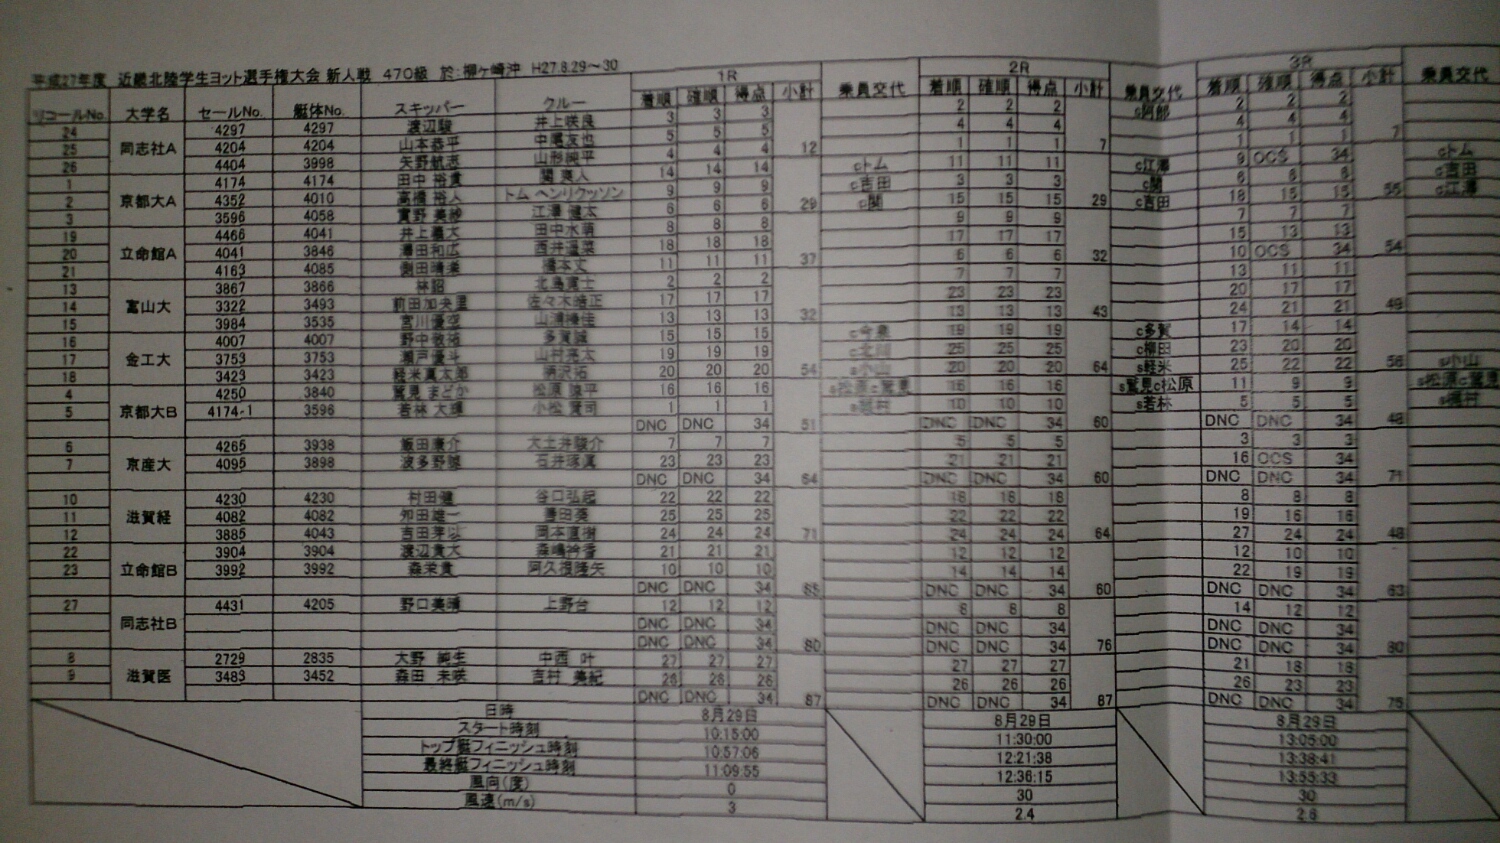 平成27年度 近畿北陸学生ヨット選手権大会 新人戦 470級 於:柳ヶ崎沖 H27.8.29～30
1R 2R 3R
リコールNo. 大学名 セールNo. 艇体No. スキッパー クルー 着順 確順 得点 小計 乗員交代 着順 確順 得点 小計 乗員交代 着順 確順 得点 小計 乗員交代
24 4297 4297 渡辺駿 井上咲良 3 3 3 2 2 2 c阿部 2 2 2
25 同志社A 4204 4204 山本恭平 中尾友也 5 5 5 4 4 4 4 4 4
26 4404 3998 矢野航志 山形 4 4 4 12 1 1 1 7 1 1 1 7
1 4174 4174 田中 裕貴 関 14 14 14 cトム 11 11 11 c江澤 9 OCS 34 cトム
2 京都大A 4352 4010 高橋 トム ヘンリクッソン 9 9 9 c吉田 3 3 3 c関 6 6 6 c吉田
3 3596 4058 美紗 江澤 健太 6 6 6 29 c関 15 15 15 29 c吉田 18 15 15 55 c江澤
19 4466 4041 井上義大 田中水萌 8 8 8 9 9 9 7 7 7
20 立命館A 4041 3846 澤田和広 西井 18 18 18 17 17 17 15 13 13
21 4163 4085 橋本丈 11 11 11 37 6 6 6 32 10 OCS 34 54
13 3867 3866 林韶 北島寛士 2 2 2 7 7 7 13 11 11
14 富山大 3322 3493 前田加央里 佐々木皓正 17 17 17 23 23 23 20 17 17
15 3984 3535 宮川優空 13 13 13 32 13 13 13 43 24 21 21 49
16 4007 4007 野中 多賀誠 15 15 15 19 19 19 c多賀 17 14 14
17 金工大 3753 3753 瀬戸優斗 山村亮太 19 19 19 c北川 25 25 25 c柳田 23 20 20
18 3423 3423 軽米真太郎 20 20 20 54 s小山 20 20 20 64 s軽米 25 22 22 56 s小山
4 4250 3840 鷲見 まどか 松原 諒平 16 16 16 s松原c鷲見 16 16 16 s鷲見c松原 11 9 9 s松原c鷲見
5 京都大B 4174-1 3596 若林 大輝 小松 賢司 1 1 1 10 10 10 s若林 5 5 5
DNC DNC 34 51 DNC DNC 34 60 DNC DNC 34 48
6 4265 3938 飯田康介 大土井駿介 7 7 7 5 5 5 3 3 3
7 京産大 4095 3898 波多野 石井琢真 23 23 23 21 21 21 16 OCS 34
DNC DNC 34 64 DNC DNC 34 60 DNC DNC 34 71
10 4230 4230 村田健 谷口弘起 22 22 22 18 18 18 8 8 8
11 滋賀経 4082 4082 知田雄一 豊田葵 25 25 25 22 22 22 19 16 16
12 3885 4043 吉田芽以 岡本直樹 24 24 24 71 24 24 24 64 27 24 24 48
22 3904 3904 渡辺貴大 森嶋 21 21 21 12 12 12 12 10 10
23 立命館B 3992 3992 森栄貴 阿久根隆矢 10 10 10 14 14 14 22 19 19
DNC DNC 34 65 DNC DNC 34 60 DNC DNC 34 63
27 4431 4205 野口美晴 上野台 12 12 12 8 8 8 14 12 12
同志社B DNC DNC 34 DNC DNC 34 DNC DNC 34
DNC DNC 34 80 DNC DNC 34 76 DNC DNC 34 80
8 2729 2835 大野 純生 中西 叶 27 27 27 27 27 27 21 18 18
9 滋賀医 3483 3452 森田 未咲 吉村 美紀 26 26 26 26 26 26 26 23 23
DNC DNC 34 87 DNC DNC 34 87 DNC DNC 34 75
日時 8月29日 8月29日 8月29日
スタート時刻 10:15:00 11:30:00 13:05:00
トップ艇フィニッシュ時刻 10:57:06 12:21:38 13:38:41
最終艇フィニッシュ時刻 11:09:55 12:36:15 13:55:33
風向(度) 0 30 30
風速(m/s) 3 2.4 2.6